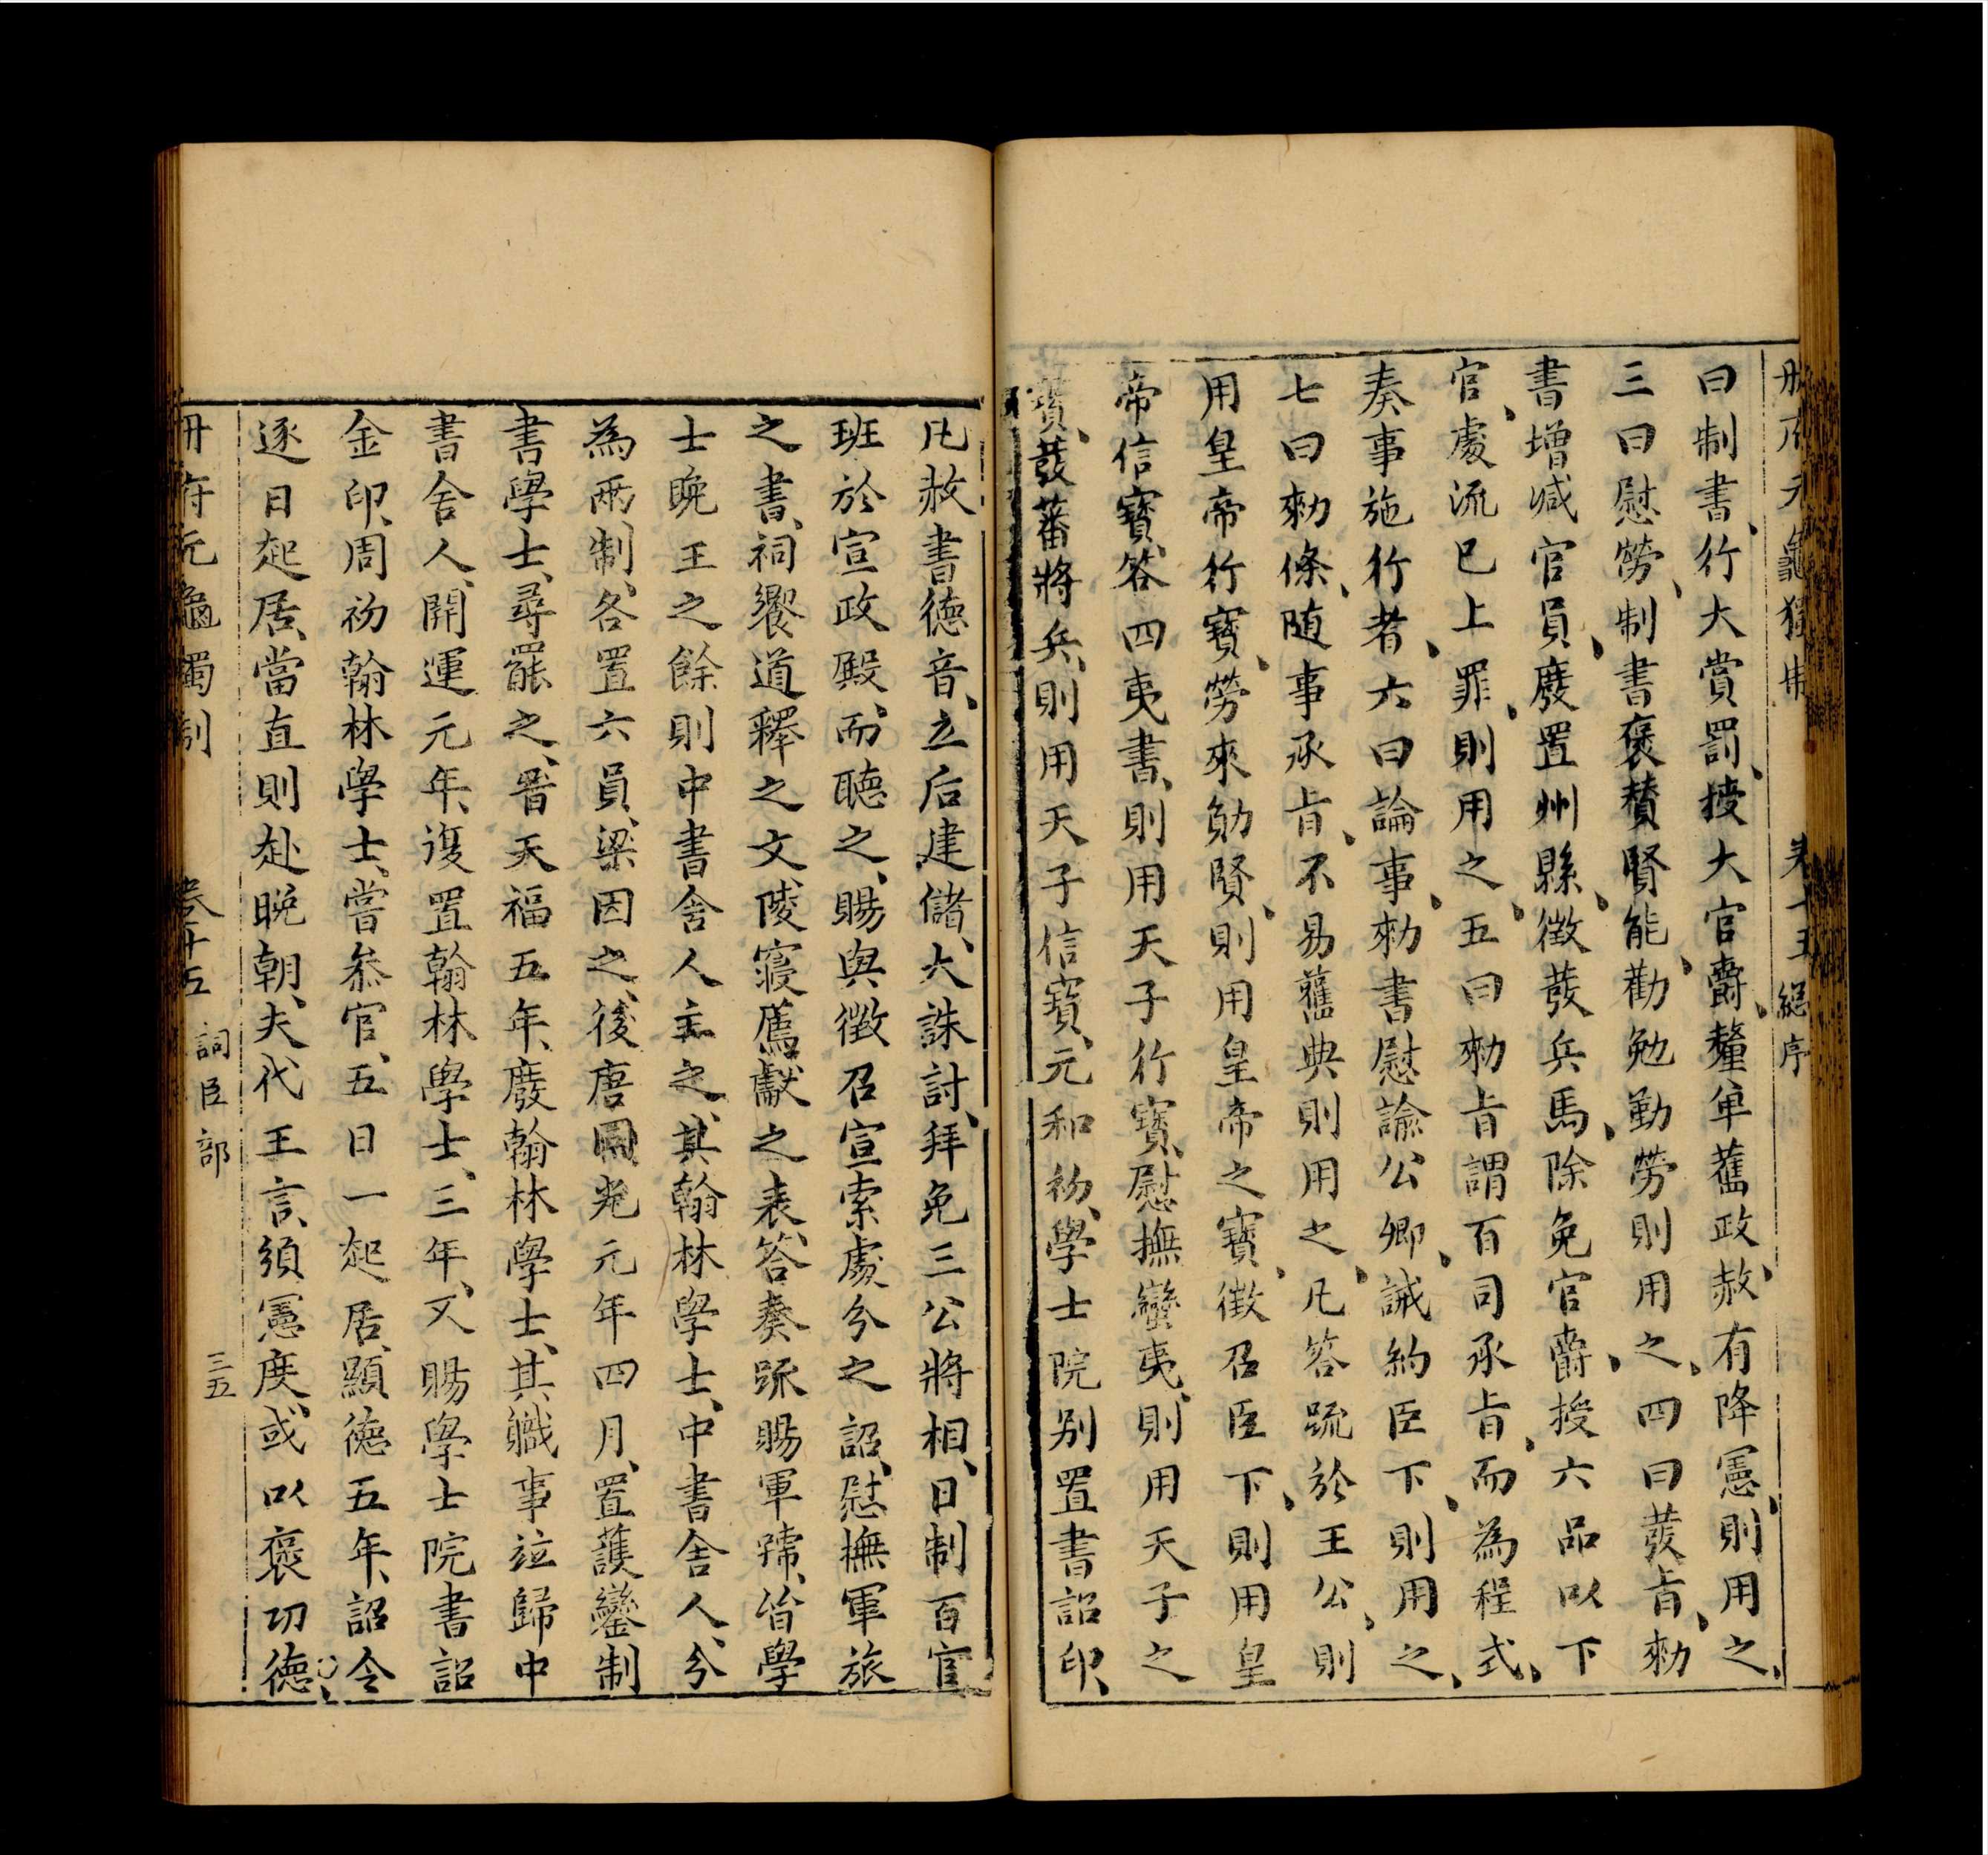 曰制書、行大賞罰、授大官爵、釐革舊政、赦有降憲、則用之、
三曰慰勞、制書褒賛賢能、勸勉勤勞則用之、四曰發㫖、勑
書增減官員、廢置州縣、徵發兵馬、除免官爵、授六品以下
官、處流已上罪、則用之、五曰勑㫖謂百司承㫖、而為程式、
奏事施行者、六曰論事、勑書慰諭公卿、誡約臣下、則用之、
七曰勑條、随事承㫖、不易舊典則用之、凡答疏於王公、則
用皇帝行寶、勞來勛賢、則用皇帝之寳、徵召臣下、則用皇
帝信寶、答四夷書、則用天子行寶、慰撫蠻夷、則用天子之
寶、發蕃將兵、則用天子信寶、元和初、學士院别置書詔印、
凡赦書德音、立后建儲、大誅討、拜免三公將相、日制百官
班於宣政殿、而聽之、賜與徵召宣索處分之詔、慰撫軍旅
之書、祠饗道釋之文、陵寢薦獻之表、答奏䟽賜軍號、皆學
士晚王之餘則中書舍人主之、其翰林學士、中書舍人、分
為兩制、各置六員、梁因之、後唐同光元年四月、置護鑾制
書學士、尋罷之、晉天福五年、廢翰林學士、其職事竝歸中
書舍人、開運元年、復置翰林學士、三年、又賜學士院書詔
金印、周初翰林學士、嘗叅官、五日一起居、顯德五年、詔令
逐日起居、當直則赴晚朝、夫代王言、須憲度、或以褒功德、
冊府元龜獨制　卷十五　詞臣部　三五